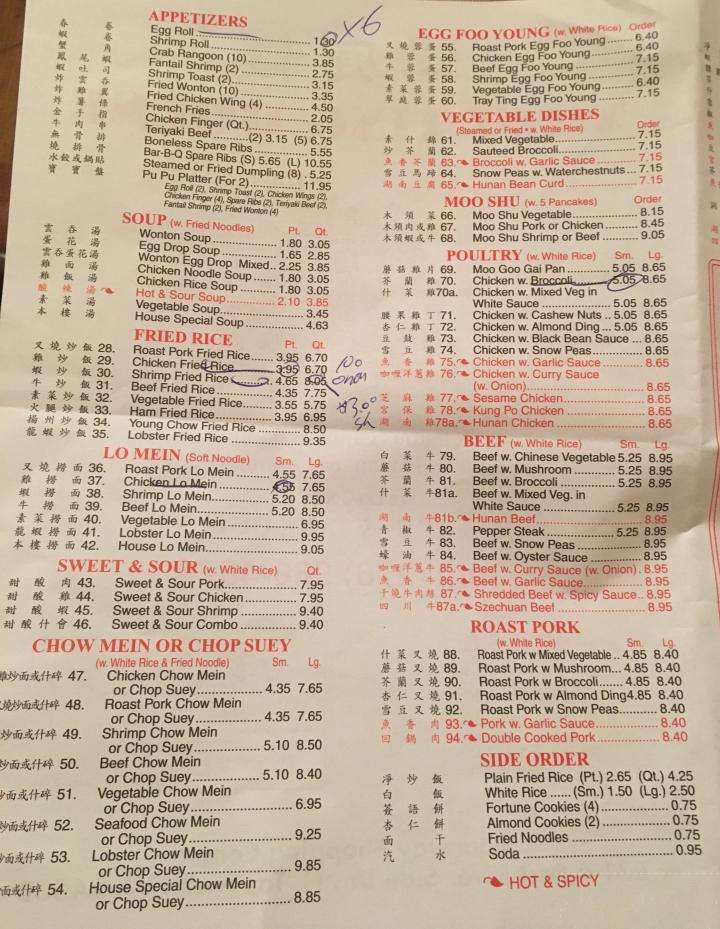 APPETIZERS
Egg Roll 1.30 x6
Shrimp Roll 1.30
Crab Rangoon (10) 3.85
Fantail Shrimp (2) 2.75
Shrimp Toast (2) 3.15
Fried Wonton (10) 3.35
Fried Chicken Wing (4) 4.50
French Fries 2.05
Chicken Finger (Qt.) 6.75
Teriyaki Beef (2) 3.15 (5) 6.75
Boneless Spare Ribs 5.55
Bar-B-Q Spare Ribs (S) 5.65 (L) 10.55
Steamed or Fried Dumpling (8) 5.25
Pu Pu Platter (For 2) 11.95
Egg Roll (2), Shrimp Toast (2), Chicken Wings (2),
Chicken Finger (4), Spare Ribs (2), Teriyaki Beef (2),
Fantail Shrimp (2), Fried Wonton (4)
SOUP (w. Fried Noodles) Pt. Qt.
雲吞湯 Wonton Soup 1.80 3.05
蛋花湯 Egg Drop Soup 1.65 2.85
雲吞蛋花湯 Wonton Egg Drop Mixed 2.25 3.85
雞面湯 Chicken Noodle Soup 1.80 3.05
雞飯湯 Chicken Rice Soup 1.80 3.05
酸辣湯 Hot & Sour Soup 2.10 3.85
素菜湯 Vegetable Soup 3.45
本樓湯 House Special Soup 4.63
FRIED RICE Pt. Qt.
叉燒炒飯 28. Roast Pork Fried Rice 3.95 6.70
雞炒飯 29. Chicken Fried Rice 3.95 6.70 no onion
蝦炒飯 30. Shrimp Fried Rice 4.65 8.05
牛炒飯 31. Beef Fried Rice 4.35 7.75
素菜炒飯 32. Vegetable Fried Rice 3.55 5.75
火腿炒飯 33. Ham Fried Rice 3.95 6.95
揚州炒飯 34. Young Chow Fried Rice 8.50
龍蝦炒飯 35. Lobster Fried Rice 9.35
LO MEIN (Soft Noodle) Sm. Lg.
叉燒撈面 36. Roast Pork Lo Mein 4.55 7.65
雞撈面 37. Chicken Lo Mein 4.55 7.65
蝦撈面 38. Shrimp Lo Mein 5.20 8.50
牛撈面 39. Beef Lo Mein 5.20 8.50
素菜撈面 40. Vegetable Lo Mein 6.95
龍蝦撈面 41. Lobster Lo Mein 9.95
本樓撈面 42. House Lo Mein 9.05
SWEET & SOUR (w. White Rice) Qt.
甜酸肉 43. Sweet & Sour Pork 7.95
甜酸雞 44. Sweet & Sour Chicken 7.95
甜酸蝦 45. Sweet & Sour Shrimp 9.40
甜酸什會 46. Sweet & Sour Combo 9.40
CHOW MEIN OR CHOP SUEY
(w. White Rice & Fried Noodle) Sm. Lg.
雞炒面或什碎 47. Chicken Chow Mein
or Chop Suey 4.35 7.65
燒炒面或什碎 48. Roast Pork Chow Mein
or Chop Suey 4.35 7.65
炒面或什碎 49. Shrimp Chow Mein
or Chop Suey 5.10 8.50
炒面或什碎 50. Beef Chow Mein
or Chop Suey 5.10 8.40
炒面或什碎 51. Vegetable Chow Mein
or Chop Suey 6.95
炒面或什碎 52. Seafood Chow Mein
or Chop Suey 9.25
炒面或什碎 53. Lobster Chow Mein
or Chop Suey 9.85
面或什碎 54. House Special Chow Mein
or Chop Suey 8.85
EGG FOO YOUNG (w. White Rice) Order
叉燒蓉蛋 55. Roast Pork Egg Foo Young 6.40
雞蓉蛋 56. Chicken Egg Foo Young 6.40
牛蓉蛋 57. Beef Egg Foo Young 7.15
蝦蓉蛋 58. Shrimp Egg Foo Young 7.15
素菜蓉蛋 59. Vegetable Egg Foo Young 6.40
翠庭蓉蛋 60. Tray Ting Egg Foo Young 7.15
VEGETABLE DISHES
(Steamed or Fried • w. White Rice) Order
素什錦 61. Mixed Vegetable 7.15
炒芥蘭 62. Sauteed Broccoli 7.15
魚香芥蘭 63. Broccoli w. Garlic Sauce 7.15
雪豆馬蹄 64. Snow Peas w. Waterchestnuts 7.15
湖南豆腐 65. Hunan Bean Curd 7.15
MOO SHU (w. 5 Pancakes) Order
木須菜 66. Moo Shu Vegetable 8.15
木須肉或雞 67. Moo Shu Pork or Chicken 8.45
木須蝦或牛 68. Moo Shu Shrimp or Beef 9.05
POULTRY (w. White Rice) Sm. Lg.
蘑菇雞片 69. Moo Goo Gai Pan 5.05 8.65
芥蘭雞 70. Chicken w. Broccoli 5.05 8.65
什菜雞 70a. Chicken w. Mixed Veg in
White Sauce 5.05 8.65
腰果雞丁 71. Chicken w. Cashew Nuts 5.05 8.65
杏仁雞丁 72. Chicken w. Almond Ding 5.05 8.65
豆鼓雞 73. Chicken w. Black Bean Sauce 8.65
雪豆雞 74. Chicken w. Snow Peas 8.65
魚香雞 75. Chicken w. Garlic Sauce 8.65
咖喱洋蔥雞 76. Chicken w. Curry Sauce
(w. Onion) 8.65
芝麻雞 77. Sesame Chicken 8.65
宮保雞 78. Kung Po Chicken 8.65
湖南雞 78a. Hunan Chicken 8.65
BEEF (w. White Rice) Sm. Lg.
白菜牛 79. Beef w. Chinese Vegetable 5.25 8.95
蘑菇牛 80. Beef w. Mushroom 5.25 8.95
芥蘭牛 81. Beef w. Broccoli 5.25 8.95
什菜牛 81a. Beef w. Mixed Veg. in
White Sauce 5.25 8.95
湖南牛 81b. Hunan Beef 8.95
青椒牛 82. Pepper Steak 5.25 8.95
雪豆牛 83. Beef w. Snow Peas 8.95
蠔油牛 84. Beef w. Oyster Sauce 8.95
咖喱洋蔥牛 85. Beef w. Curry Sauce (w. Onion) 8.95
魚香牛 86. Beef w. Garlic Sauce 8.95
干燒牛肉絲 87. Shredded Beef w. Spicy Sauce 8.95
四川牛 87a. Szechuan Beef 8.95
ROAST PORK
(w. White Rice) Sm. Lg.
什菜叉燒 88. Roast Pork w Mixed Vegetable 4.85 8.40
蘑菇叉燒 89. Roast Pork w Mushroom 4.85 8.40
芥蘭叉燒 90. Roast Pork w Broccoli 4.85 8.40
杏仁叉燒 91. Roast Pork w Almond Ding 4.85 8.40
雪豆叉燒 92. Roast Pork w Snow Peas 8.40
魚香肉 93. Pork w. Garlic Sauce 8.40
回鍋肉 94. Double Cooked Pork 8.40
SIDE ORDER
凈炒飯 Plain Fried Rice (Pt.) 2.65 (Qt.) 4.25
白飯 White Rice (Sm.) 1.50 (Lg.) 2.50
簽語餅 Fortune Cookies (4) 0.75
杏仁餅 Almond Cookies (2) 0.75
面干 Fried Noodles 0.75
汽水 Soda 0.95
HOT & SPICY